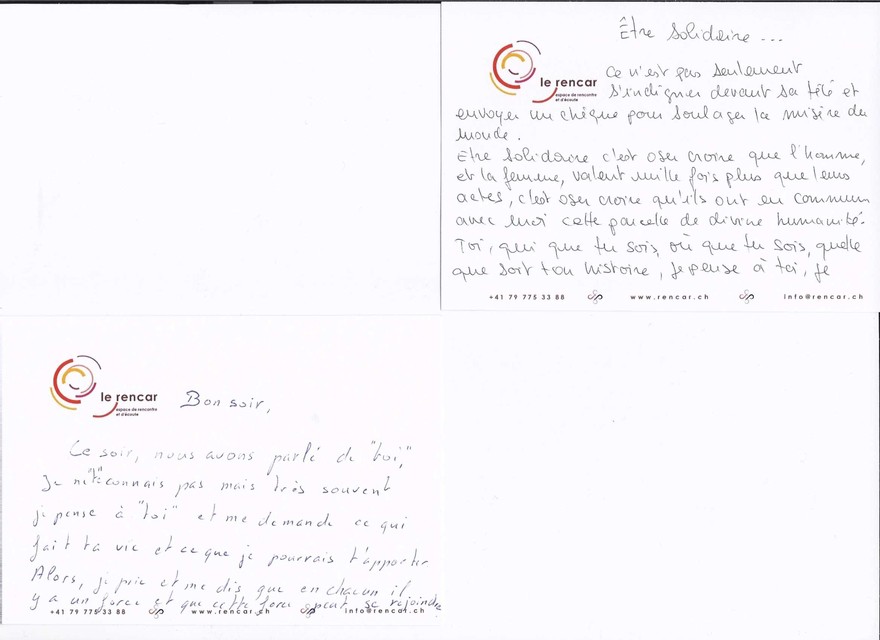 Être solidaire ...
le rencar
espace de rencontre
et d'écoute
Ce n'est pas seulement
s'indigner devant sa télé et
envoyer un chèque pour soulager la misère du
monde.
Etre solidaire c'est oser croire que l'homme,
et la femme, valent mille fois plus que leurs
actes, c'est oser croire qu'ils ont en commun
avec moi cette parcelle de divine humanité.
Toi, qui que tu sois, où que tu sois, quelle
que soit ton histoire, je pense à toi, je
+41 79 775 33 88 www.rencar.ch info@rencar.ch
le rencar
espace de rencontre
et d'écoute
Bonsoir,
Ce soir, nous avons parlé de "toi,"
Je ne "te" connais pas mais très souvent
je pense à "toi" et me demande ce qui
fait ta vie et ce que je pourrais t'apporter
Alors, je prie et me dis que en chacun il
y a un force et que cette force peut se rejoindre
+41 79 775 33 88 www.rencar.ch info@rencar.ch